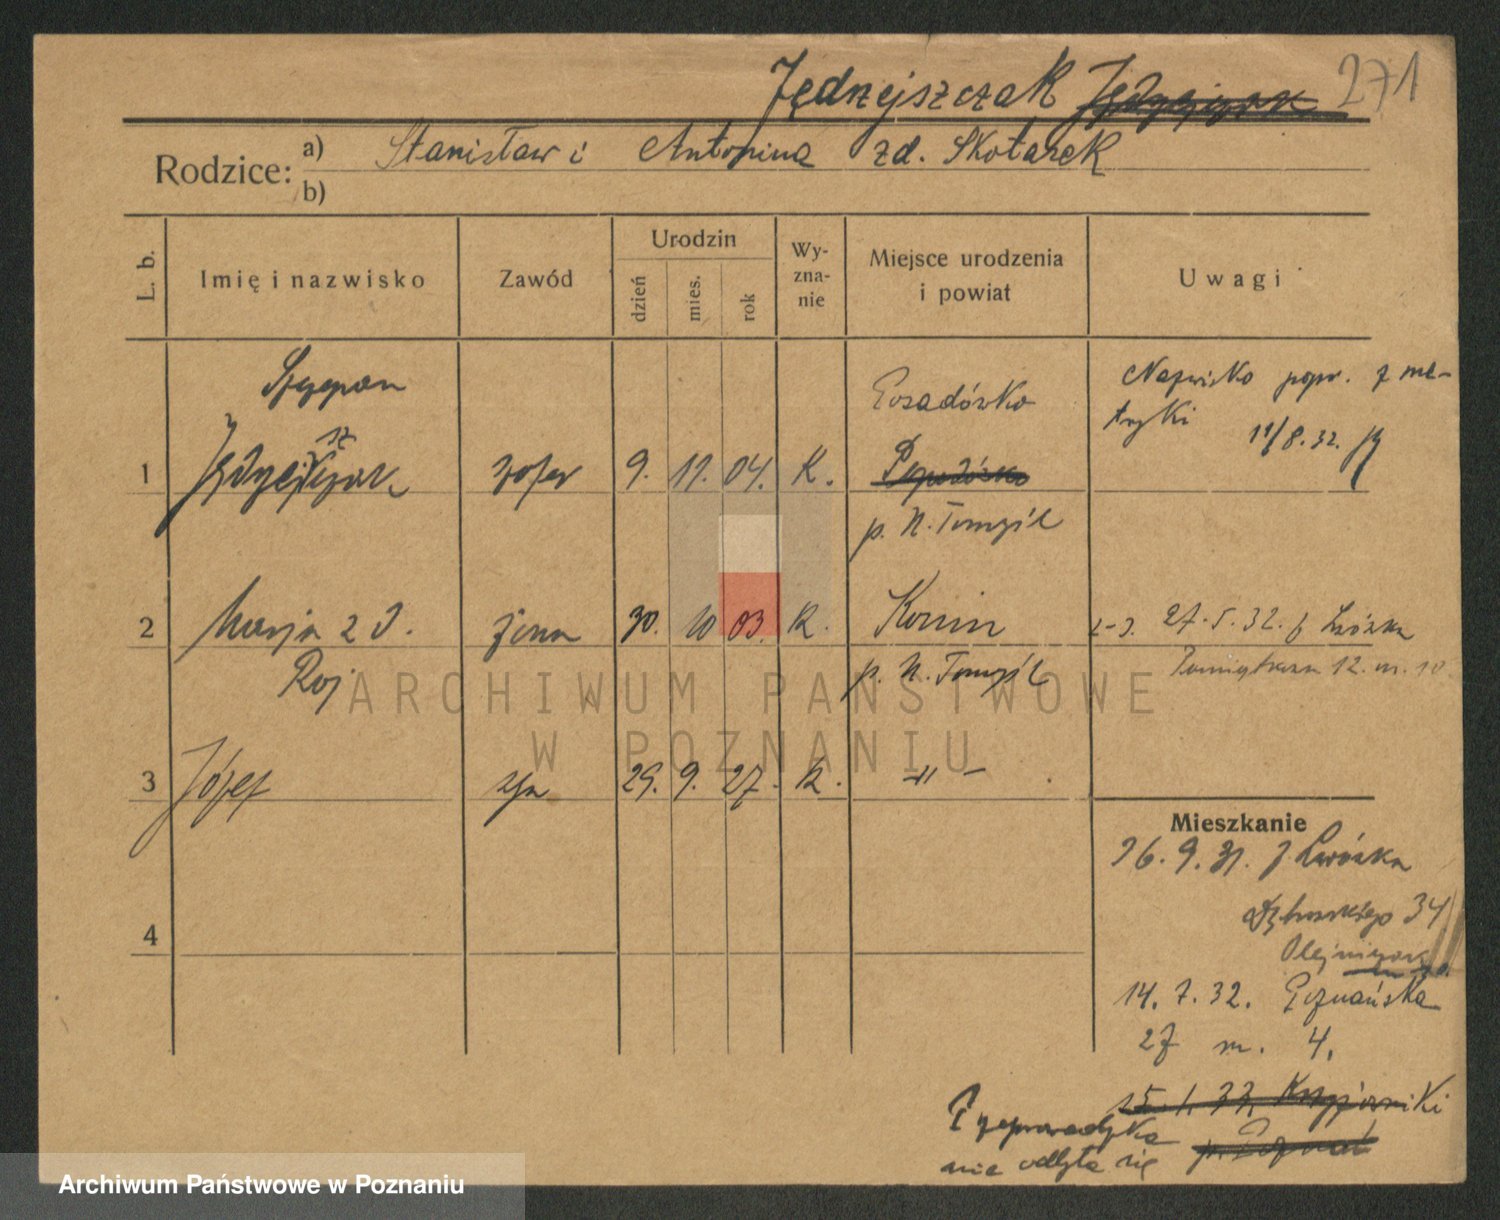 Jędrzejszczak Jędrzejczak 271
Rodzice: a) Stanisław i Antonina zd. Skotarek
b)
L. b. Imię i nazwisko Zawód Urodzin dzień mies. rok Wyznanie Miejsce urodzenia i powiat Uwagi
Szczepan Posadówko Nazwisko popr. z me-
tryki 11/8. 32.
1 Jędrzejczak sz szofer 9. 11. 04. K.
p. N. Tomyśl
2 Marja zd. żona 30. 10 03. K. Konin 2-3. 27. 5. 32. z Lwówka
Roj p. N. Tomyśl 12. m. 10
3 Józef syn 29. 9. 27. K. -"-
Mieszkanie
26. 9. 31. z Lwówka
Dąbrowskiego 34
4
14. 7. 32. Poznańska
27 m. 4.
25. 1. 33. Krzyżowniki
Przeprowadzka p. Poznań
nie odbyła się
ARCHIWUM PAŃSTWOWE
W POZNANIU
Archiwum Państwowe w Poznaniu